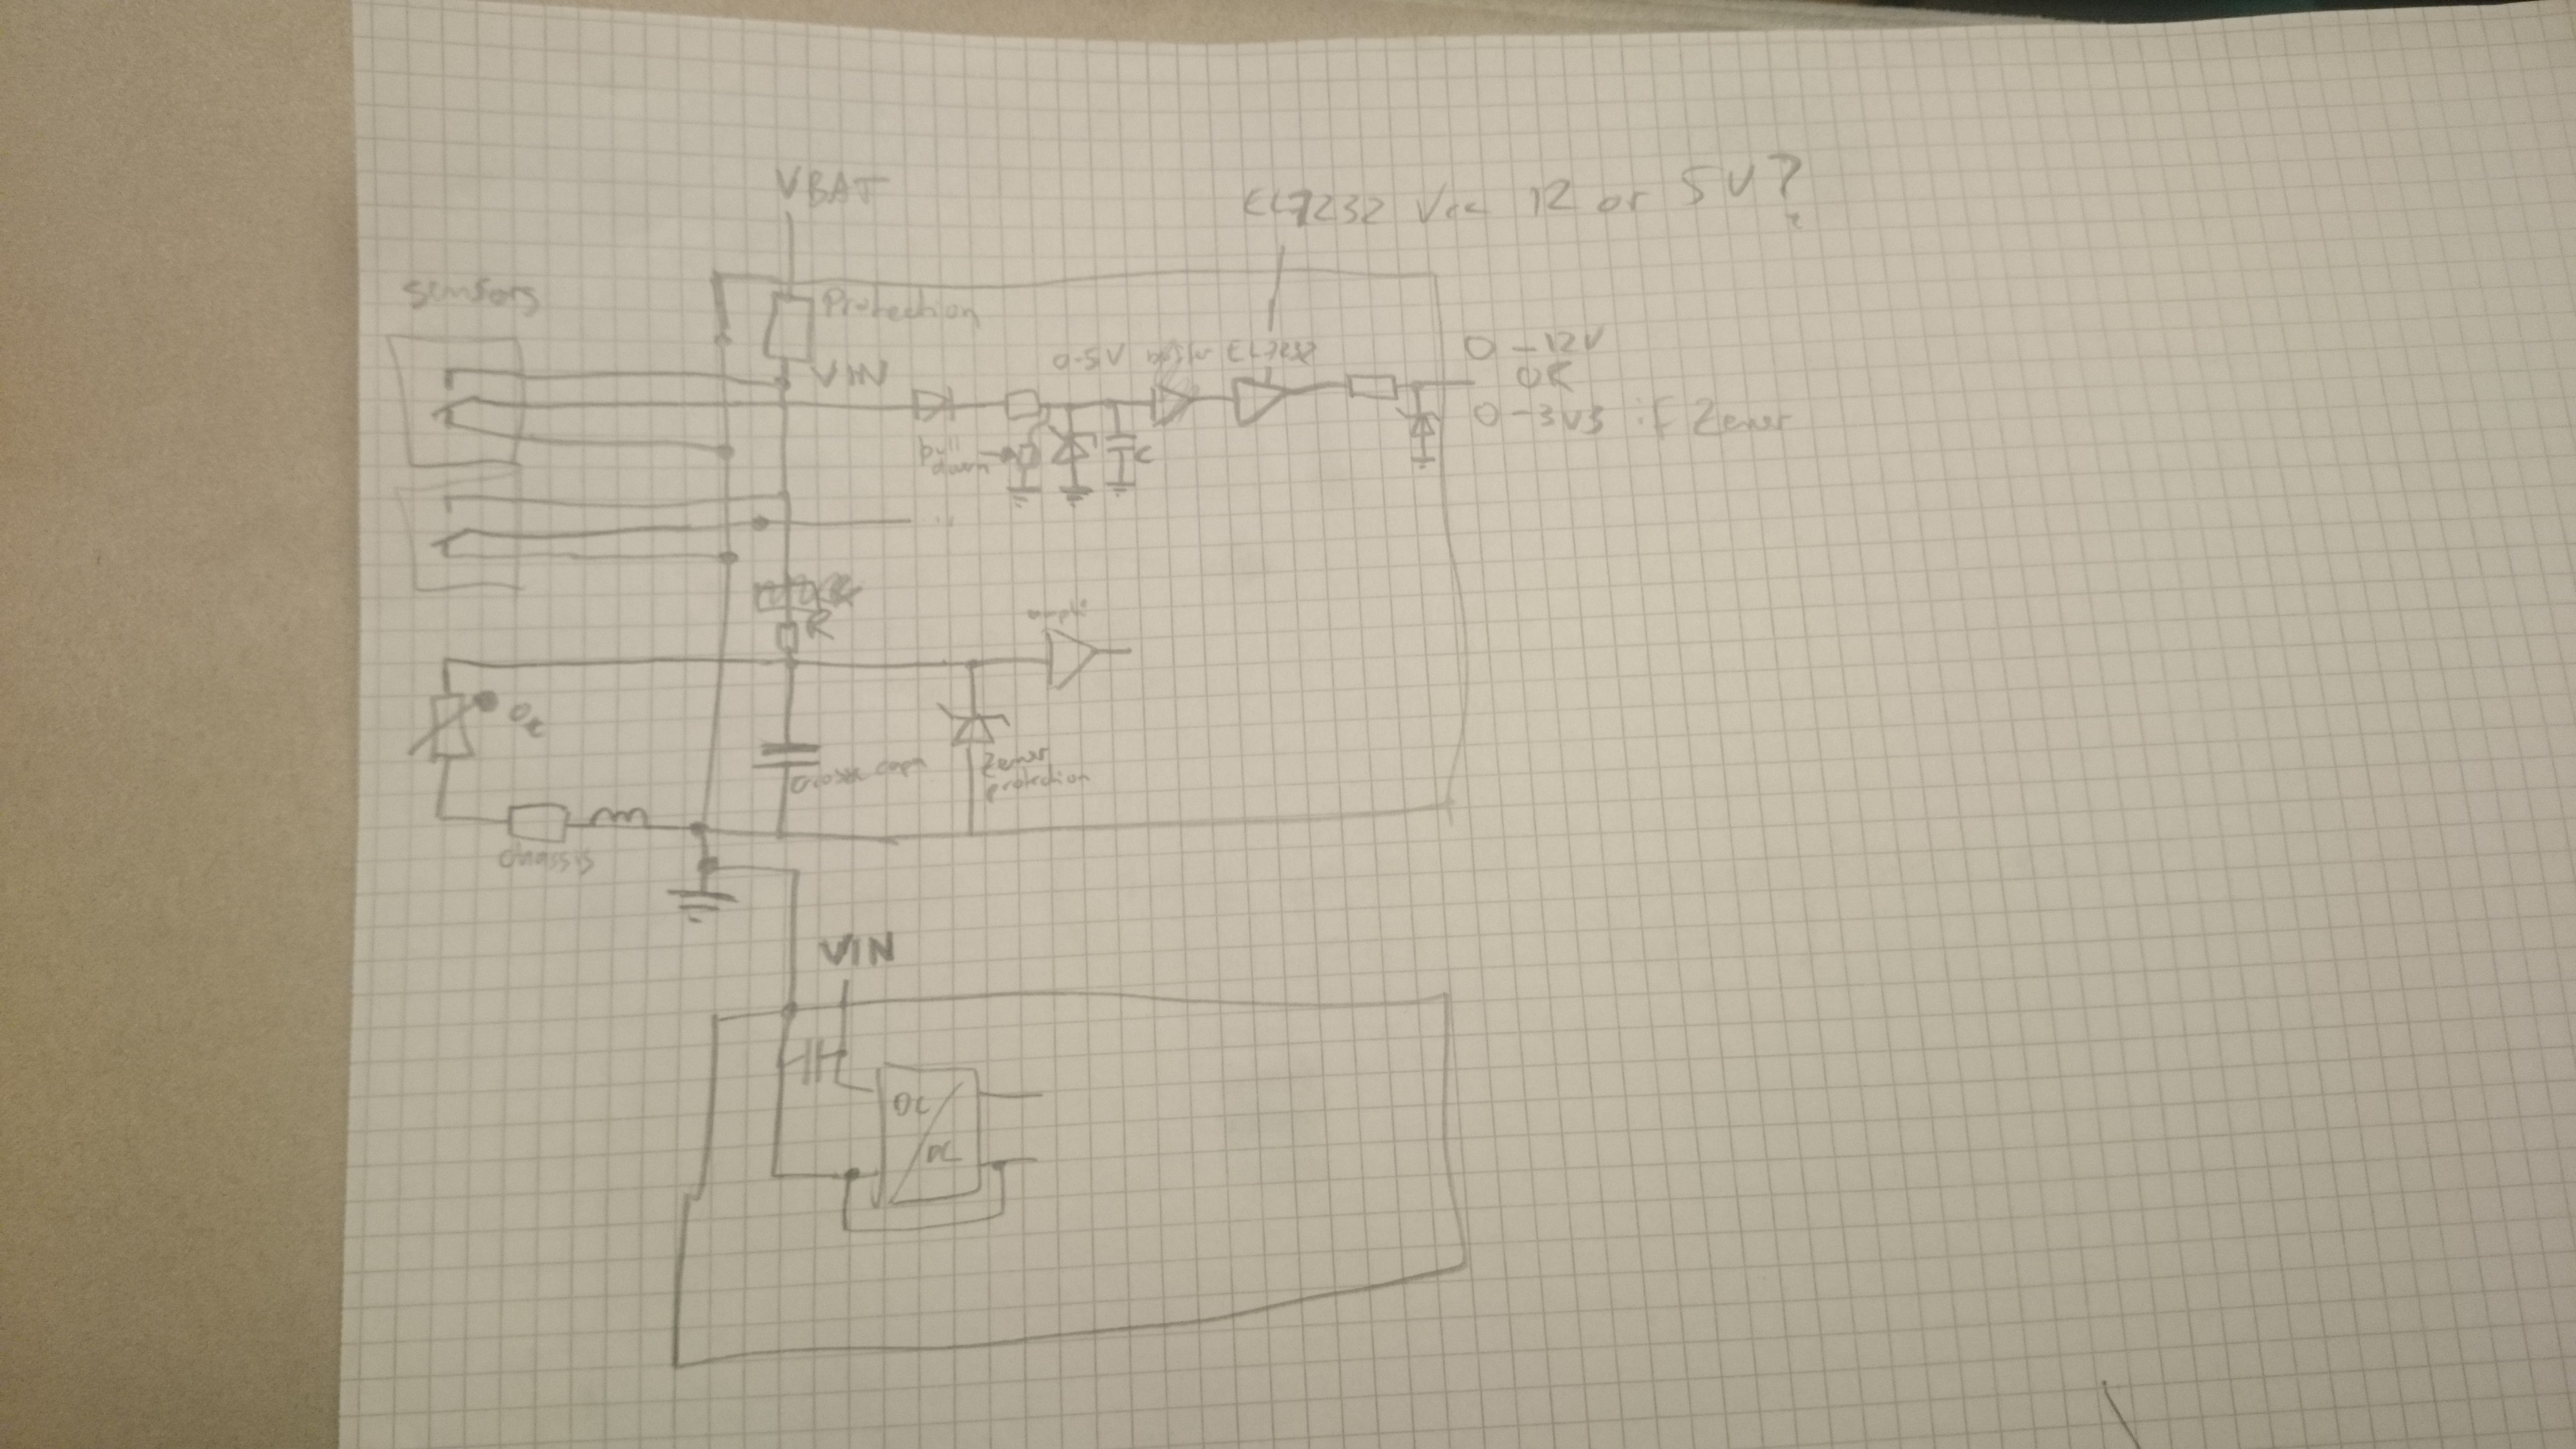 VBAT
EL7232 Vcc 12 or 5V?
sensors
Protection
VIN
0-5V buffer EL7232
0 - 12V
OK
0 - 3V3 if Zener
pull
down
C
R
ampli
Zener
protection
grosse capa
chassis
VIN
DC
DC